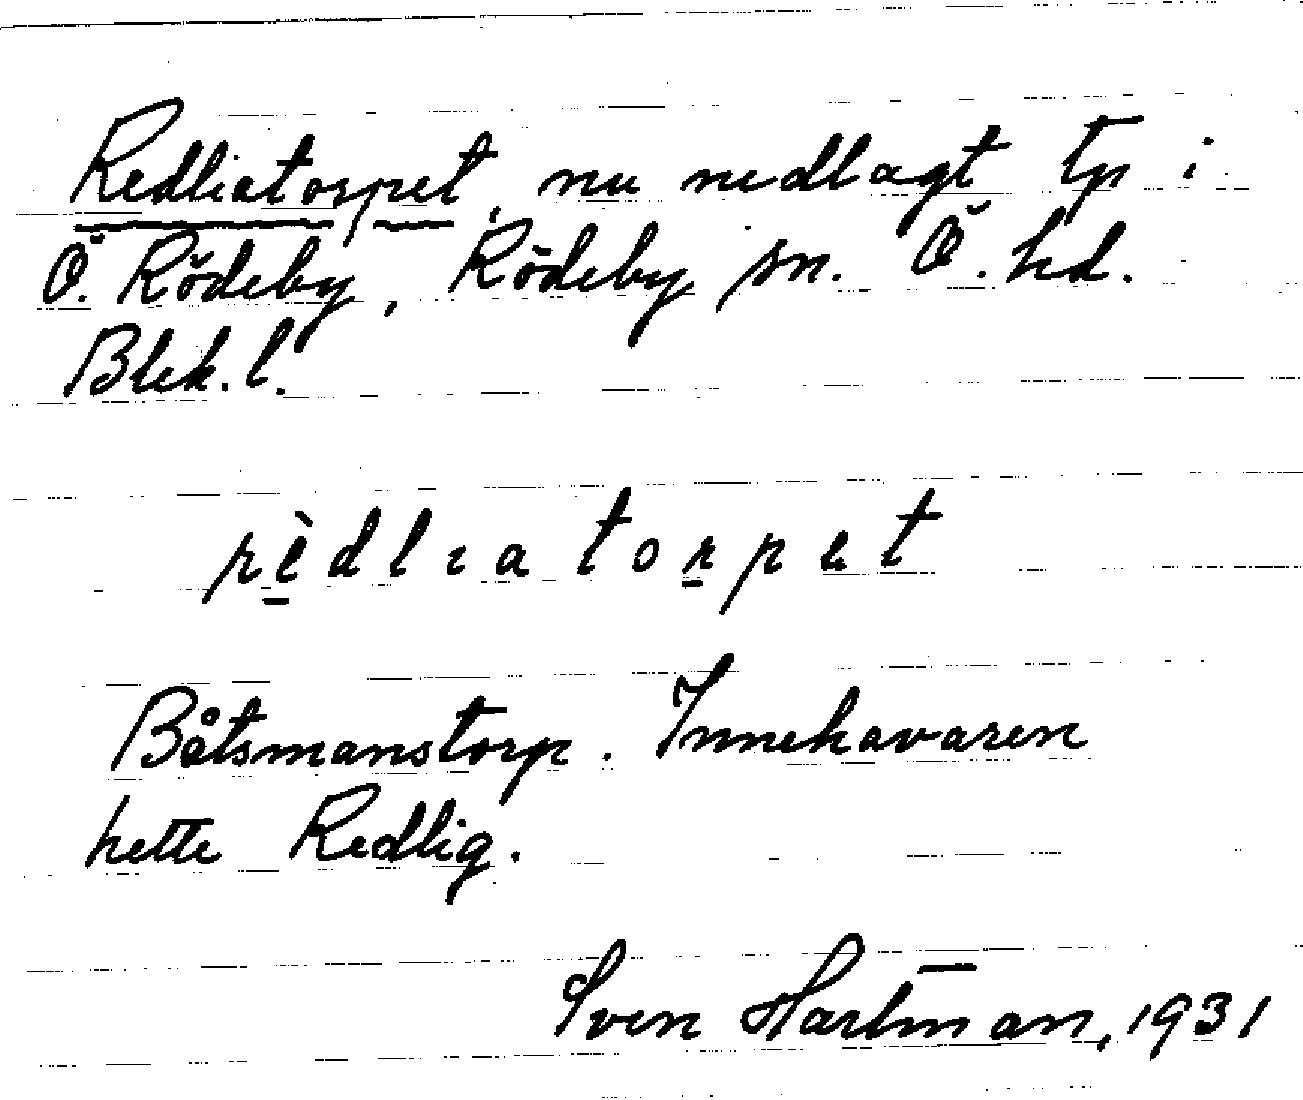 Redliatorpet, nu nedlagt tp i
Ö. Rödeby, Rödeby sn. Ö. hd.
Blek. l.
rèdlıatorpet
Båtsmanstorp. Innehavaren
hette Redlig.
Sven Hartman, 1931